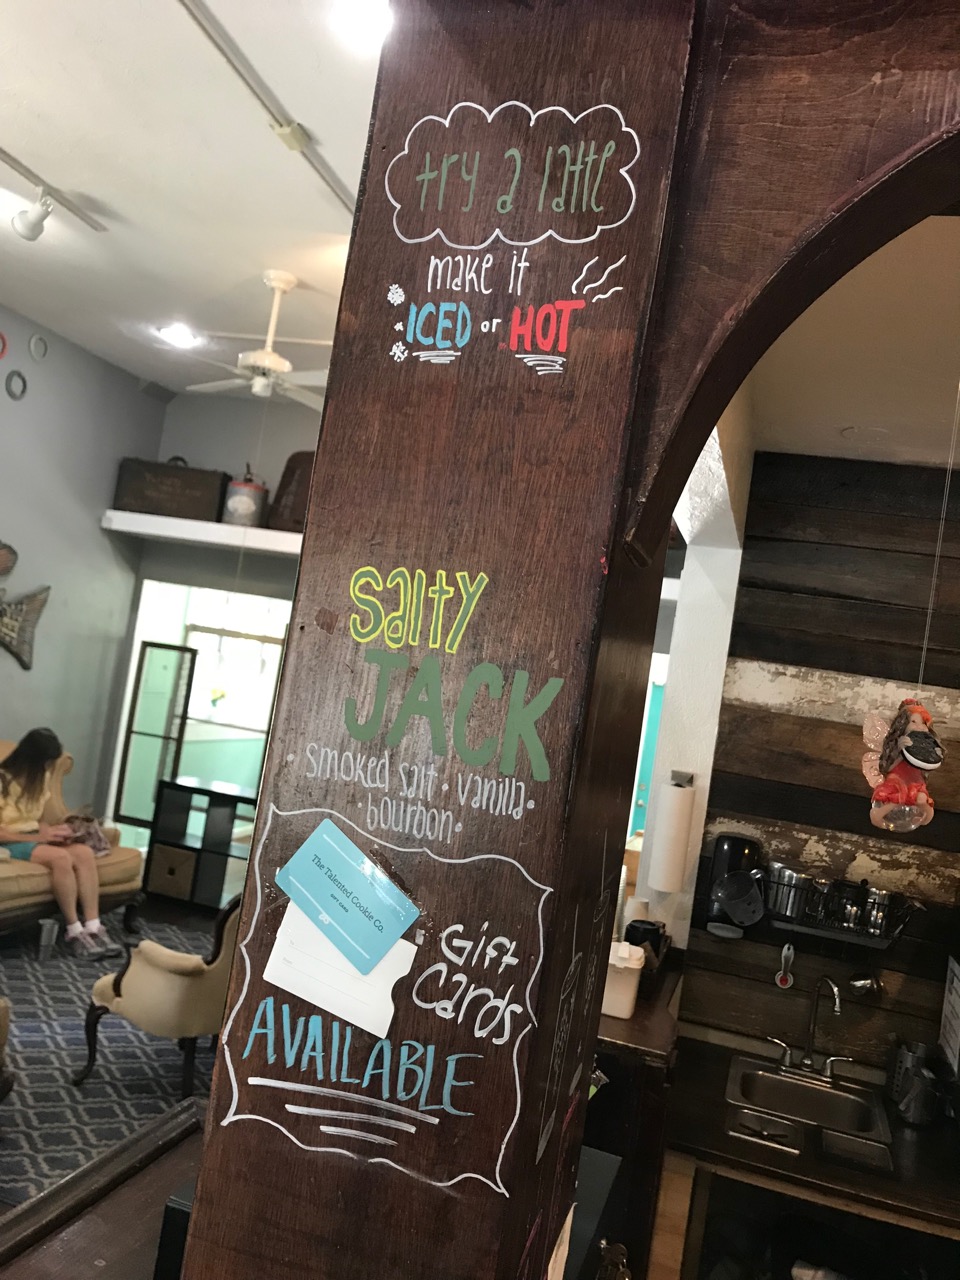 try a latte
make it
ICED or HOT
Salty
JACK
• smoked salt • vanilla •
• bourbon •
The Talented Cookie Co.
GIFT CARD
Gift
Cards
AVAILABLE